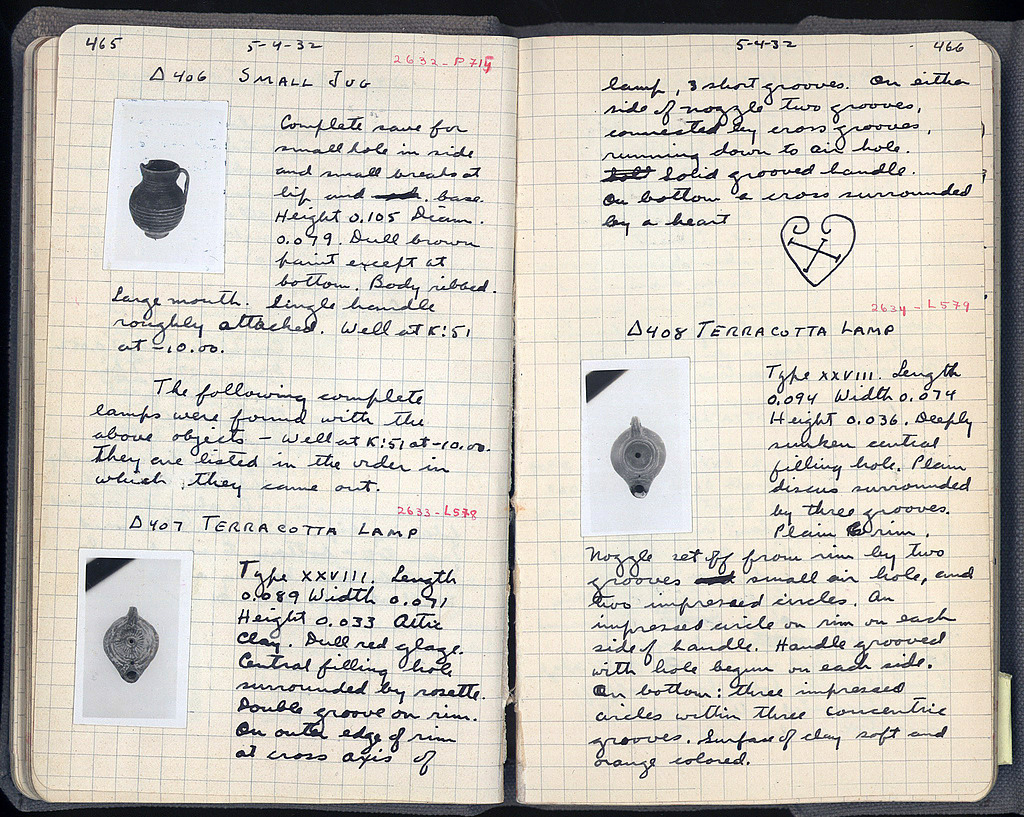 465
5-4-32
2632-P715
Δ406 SMALL JUG
Complete save for
small hole in side
and small breaks at
lip and base.
Height 0.105 Diam.
0.079. Dull brown
paint except at
bottom. Body ribbed.
Large mouth. Single handle
roughly attached. Well at K:51
at -10.00.
The following complete
lamps were found with the
above objects – Well at K:51 at -10.00.
They are listed in the order in
which they came out.
2633-L578
Δ407 TERRACOTTA LAMP
Type XXVIII. Length
0.089 Width 0.071
Height 0.033 Attic
clay. Dull red glaze.
Central filling hole
surrounded by rosette.
Double groove on rim.
On outer edge of rim
at cross axis of
5-4-32
466
lamp, 3 short grooves. On either
side of nozzle two grooves,
connected by cross grooves,
running down to air hole.
Solid grooved handle.
On bottom a cross surrounded
by a heart
2634-L579
Δ408 TERRACOTTA LAMP
Type XXVIII. Length
0.094 Width 0.074
Height 0.036. Deeply
sunken central
filling hole. Plain
discus surrounded
by three grooves.
Plain rim.
Nozzle set off from rim by two
grooves small air hole, and
two impressed circles. An
impressed circle on rim on each
side of handle. Handle grooved
with hole begun on each side.
On bottom: three impressed
circles within three concentric
grooves. Surface of clay soft and
orange colored.